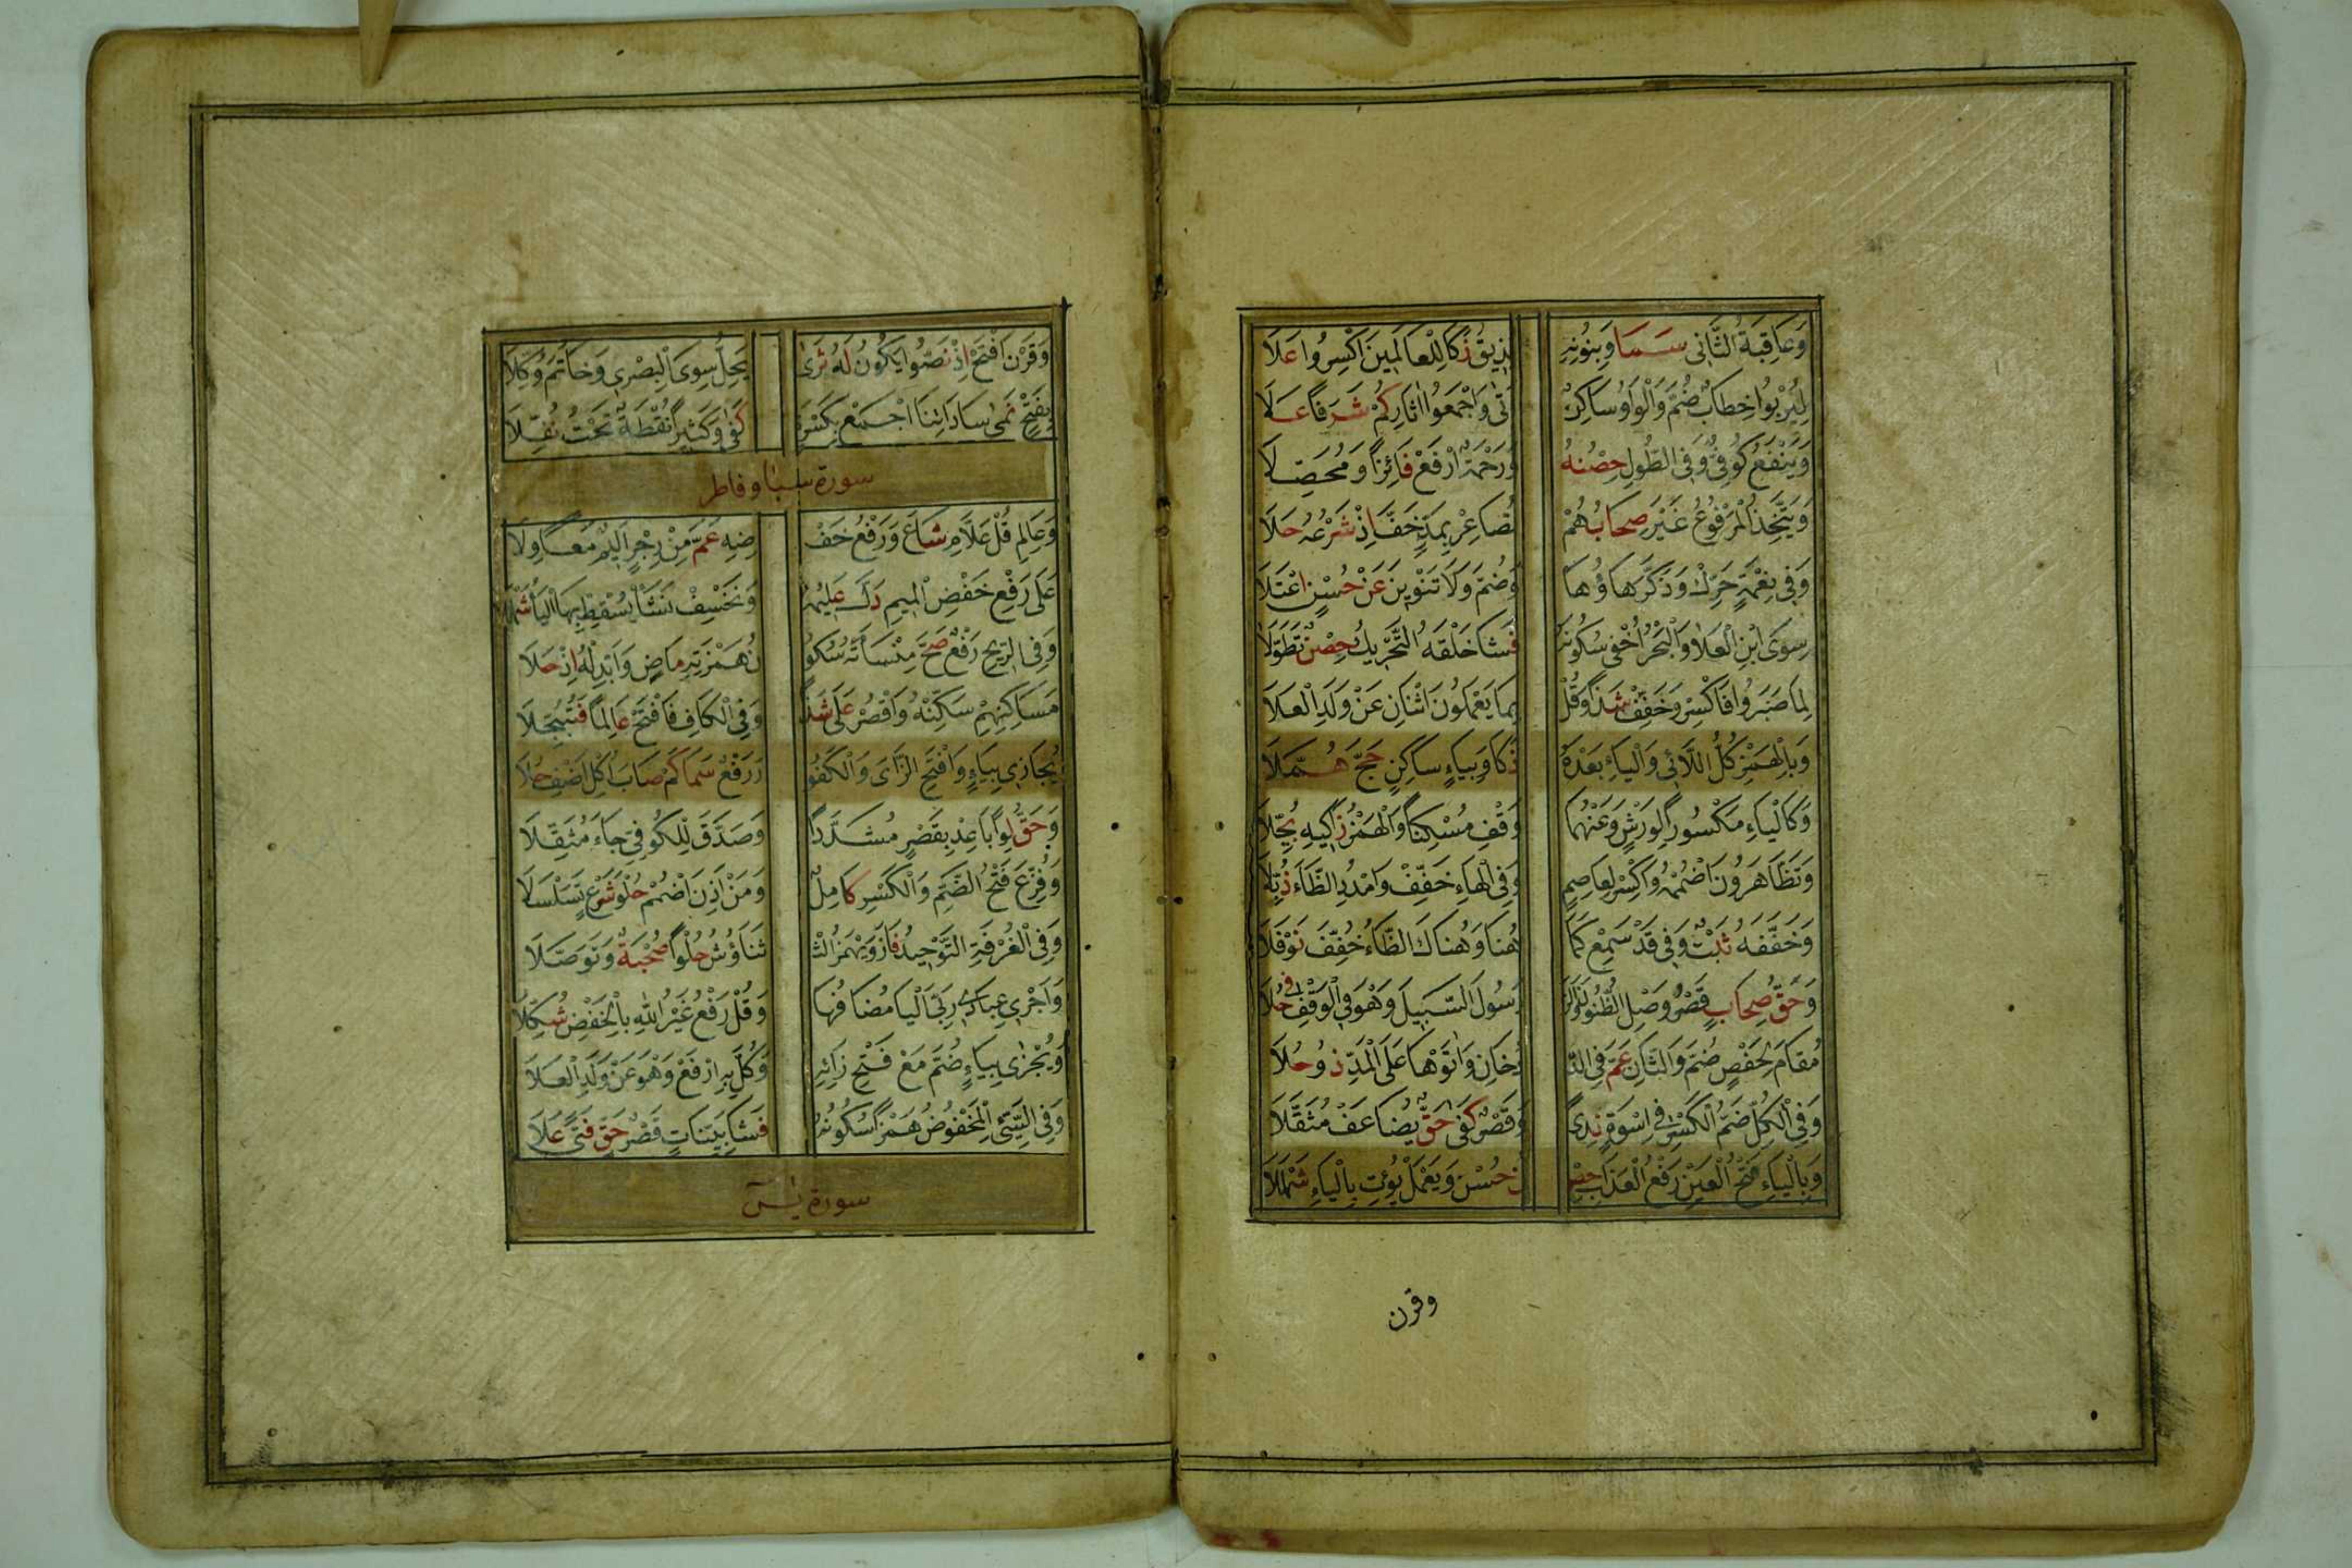 وَعَاقِبَةُ الثَّانِي سَمَا وَبِنُونِهِ نُذِيقُ زَكَا لِلْعَالَمِينَ اكْسِرُوا عَلَا
لِيُرْبُوا خِطَابٌ ضُمَّ وَالْوَاوُ سَاكِنٌ أَتَى وَاجْمَعُوا اٰثَارِكُمْ شَرَفًا عَلَا
وَيَنْفَعُ كُوفِيٌّ وَفِي الطُّولِ حِصْنُهُ وَرَحْمَةً ارْفَعْ فَائِزًا وَمُحَصِّلَا
وَيَتَّخِذُ الْمَرْفُوعُ غَيْرَ صِحَابُهُمْ تُصَاعِرْ بِمَدٍّ خَفَّ اِذْ شَرْعُهُ حَلَا
وَفِي نِعْمَةٍ حَرِّكْ وَذُكِّرَ هَاؤُهَا وَضُمَّ وَلَا تَنْوِينَ عَنْ حُسْنٍ اعْتَلَا
سِوَى ابْنِ الْعَلَا وَالْبَحْرُ أُخْفِي سُكُونُهُ فَشَا خَلْقَهُ التَّحْرِيكُ حِصْنٌ تَطَوَّلَا
لِمَا صَبَرُوا فَاكْسِرْ وَخَفِّفْ شَذًا وَقُلْ بِمَا يَعْمَلُونَ اثْنَانِ عَنْ وَلَدِ الْعَلَا
وَبِالْهَمْزِ كُلُّ اللَّائِي وَالْيَاءِ بَعْدَهُ ذَكَا وَبِيَاءٍ سَاكِنٍ حَجَّ هُمَّلَا
وَكَالْيَاءِ مَكْسُورًا لِوَرْشٍ وَعَنْهُمَا وَقِفْ مُسْكِنًا وَالْهَمْزُ زَاكِيهِ بُجِّلَا
وَتَظَّاهَرُونَ اضْمُمْهُ وَاكْسِرْ لِعَاصِمٍ وَفِي الْهَاءِ خَفِّفْ وَامْدُدِ الظَّاءَ ذُبَّلَا
وَخَفَّفَهُ ثَبْتٌ وَفِي قَدْ سَمِعْ كَمَا هُنَا وَهُنَاكَ الظَّاءُ خُفِّفَ نَوْفَلَا
وَحَقُّ صِحَابٍ قَصْرُ وَصْلِ الظُّنُونَ وَالرْ رَسُولَ السَّبِيلَ وَهْوَ فِي الْوَقْفِ فِي حُلَا
مُقَامَ لِحَفْصٍ ضُمَّ وَالثَّانِ عَمَّ فِي الدْ دُخَانِ وَاٰتَوْهَا عَلَى الْمَدِّ ذُو حُلَا
وَفِي الْكُلِّ ضَمُّ الْكَسْرِ فِي اِسْوَةٍ نَدًى وَقَصْرُ كَفَى حَقٍّ يُضَاعَفْ مُثَقَّلَا
وَبِالْيَاءِ فَتْحُ الْعَيْنِ رَفْعُ الْعَذَابَ حِصْ نُ حُسْنٍ وَيَعْمَلْ يُؤْتِ بِالْيَاءِ شَمْلَلَا
وقرن
وَقَرْنَ افْتَحْ اِذْ نَصُّوا يَكُونَ لَهُ ثَرَى يَحِلُّ سِوَى الْبَصْرِي وَخَاتَمَ وُكِّلَا
بِفَتْحٍ نَمَى سَادَاتِنَا اجْمَعْ بِكَسْرَةٍ كَفَى وَكَثِيرًا نُقْطَةٌ تَحْتُ نُفِّلَا
سورة سبا و فاطر
وَعَالِمِ قُلْ عَلَّامِ شَاعَ وَرَفْعُ خَفْ ضِهِ عَمَّ مِنْ رِجْزٍ اَلِيمٍ مَعًا وِلَا
عَلَى رَفْعِ خَفْضِ الْمِيمِ دَلَّ عَلِيمُهُ وَنَخْسِفْ نَشَأْ نُسْقِطْ بِهَا الْيَاءُ شَمْلَلَا
وَفِي الرِّيحِ رَفْعٌ صَحَّ مِنْسَأَتَهُ سُكُو نُ هَمْزَتِهِ مَاضٍ وَأَبْدِلْهُ اِذْ حَلَا
مَسَاكِنِهِمْ سَكِّنْهُ وَاقْصُرْ عَلَى شَذًا وَفِي الْكَافِ فَافْتَحْ عَالِمًا فَتُبَجَّلَا
يُجَازِي بِيَاءٍ وَافْتَحِ الزَّايَ وَالْكَفُو رَ رَفْعٌ سَمَا كَمْ صَابَ اُكْلِ اَضِفْ حُلَا
وَحَقُّ لِوًا بَاعِدْ بِقَصْرٍ مُشَدَّدًا وَصَدَّقَ لِلْكُوفِيِّ جَاءَ مُثَقَّلَا
وَفُزِّعَ فَتْحُ الضَّمِّ وَالْكَسْرِ كَامِلٌ وَمَنْ أَذِنَ اضْمُمْ حُلْوَ شَرْعٍ تَسَلْسَلَا
وَفِي الْغُرْفَةِ التَّوْحِيدُ فَازَ وَيُهْمَزُ التْ تَنَاؤُشُ حُلْوًا صُحْبَةً وَتَوَصَّلَا
وَأَجْرِي عِبَادِي رَبِّيَ الْيَا مُضَافُهَا وَقُلْ رَفْعُ غَيْرُ اللّٰهِ بِالْخَفْضِ شُكِّلَا
وَيُجْزَى بِيَاءٍ ضُمَّ مَعْ فَتْحِ زَائِهِ وَكُلَّ بِهِ ارْفَعْ وَهْوَ عَنْ وَلَدِ الْعَلَا
وَفِي السَّيِّئِ الْمَخْفُوضِ هَمْزًا سُكُونُهُ فَشَا بَيِّنَاتٍ قَصْرُ حَقٍّ فَتًى عَلَا
سورة يٰسٓ